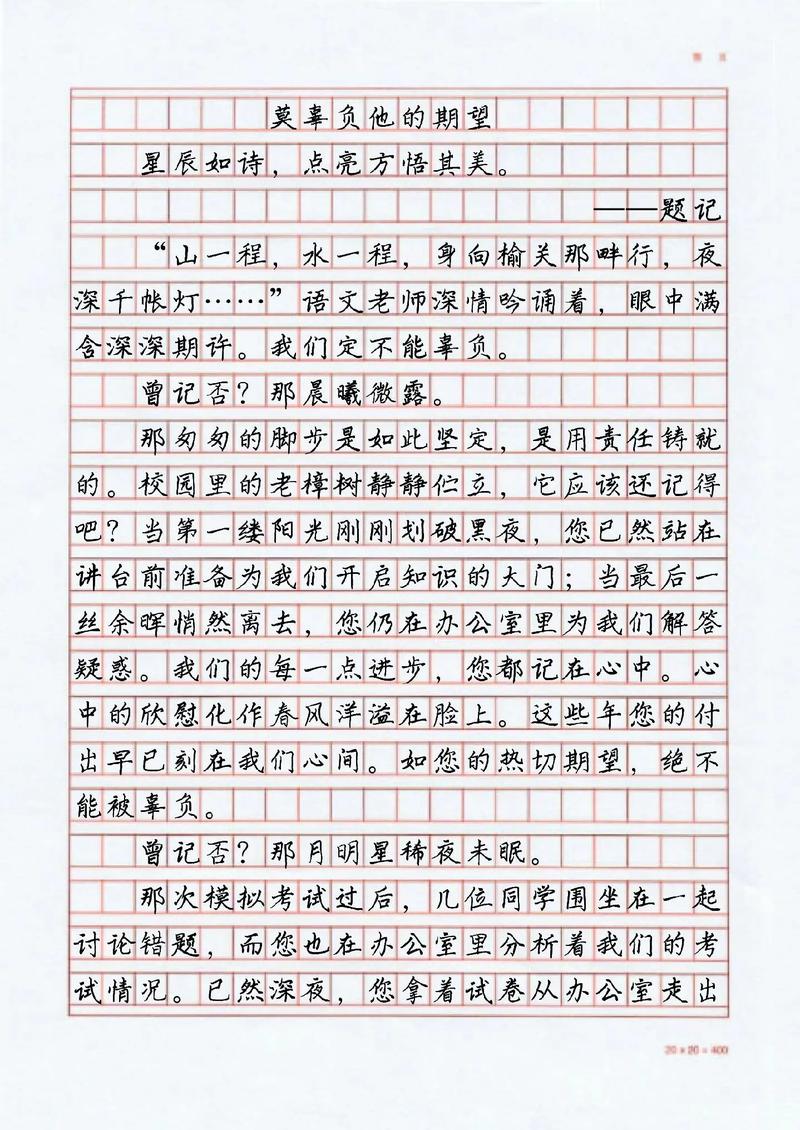 莫辜负他的期望
星辰如诗，点亮方悟其美。
——题记
“山一程，水一程，身向榆关那畔行，夜
深千帐灯……”语文老师深情吟诵着，眼中满
含深深期许。我们定不能辜负。
曾记否？那晨曦微露。
那匆匆的脚步是如此坚定，是用责任铸就
的。校园里的老樟树静静伫立，它应该还记得
吧？当第一缕阳光刚刚划破黑夜，您已然站在
讲台前准备为我们开启知识的大门；当最后一
丝余晖悄然离去，您仍在办公室里为我们解答
疑惑。我们的每一点进步，您都记在心中。心
中的欣慰化作春风洋溢在脸上。这些年您的付
出早已刻在我们心间。如您的热切期望，绝不
能被辜负。
曾记否？那月明星稀夜未眠。
那次模拟考试过后，几位同学围坐在一起
讨论错题，而您也在办公室里分析着我们的考
试情况。已然深夜，您拿着试卷从办公室走出
20×20=400